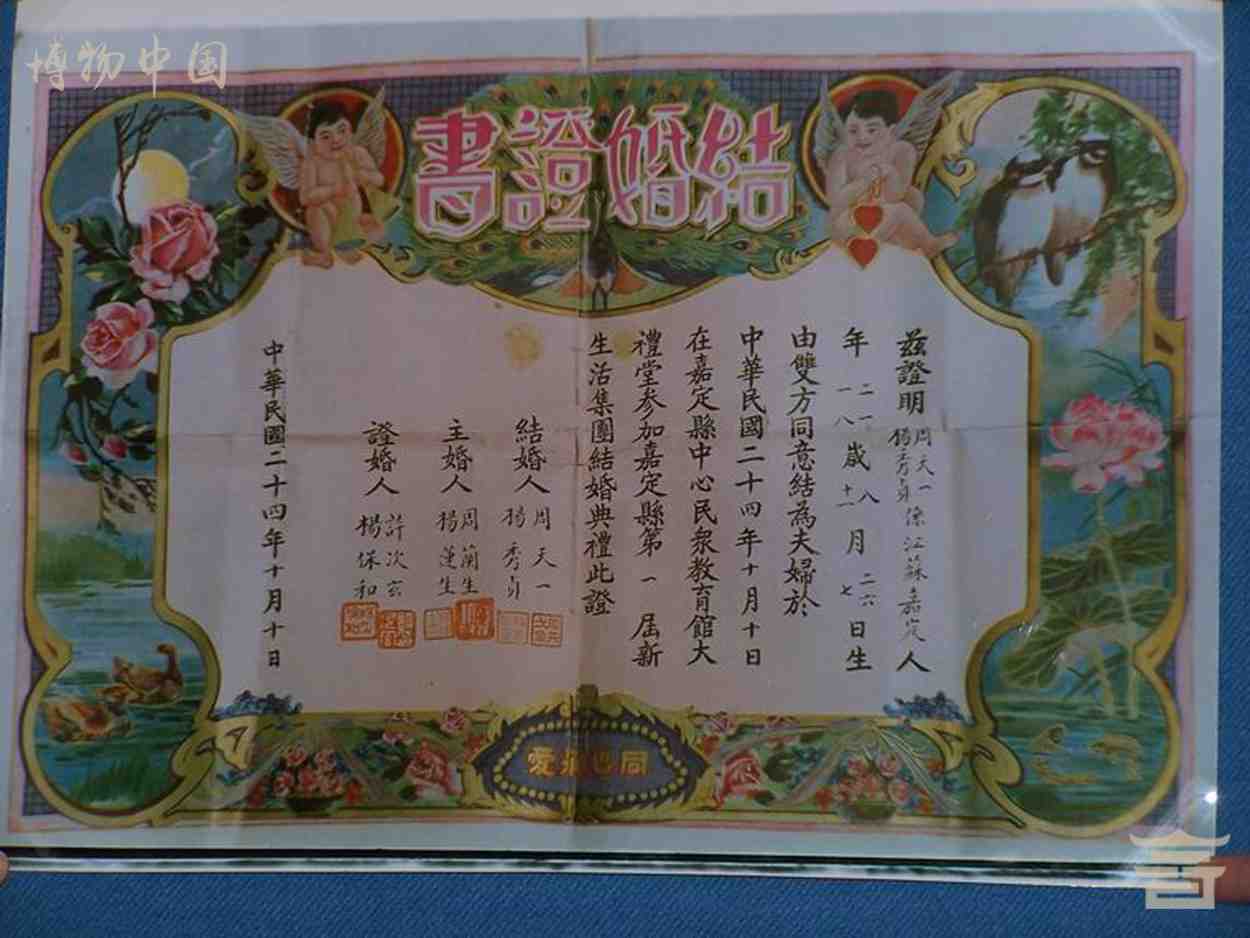 博物中国
結婚證書
茲證明周天一楊秀貞係江蘇嘉定人
年二一一八歲八十一月二六七日生
由雙方同意結為夫婦於
中華民國二十四年十月十日
在嘉定縣中心民衆教育館大
禮堂參加嘉定縣第一屆新
生活集團結婚典禮此證
結婚人周天一楊秀貞
主婚人周蘭生楊蓮生
證婚人許次玄楊保和
中華民國二十四年十月十日
同心相愛